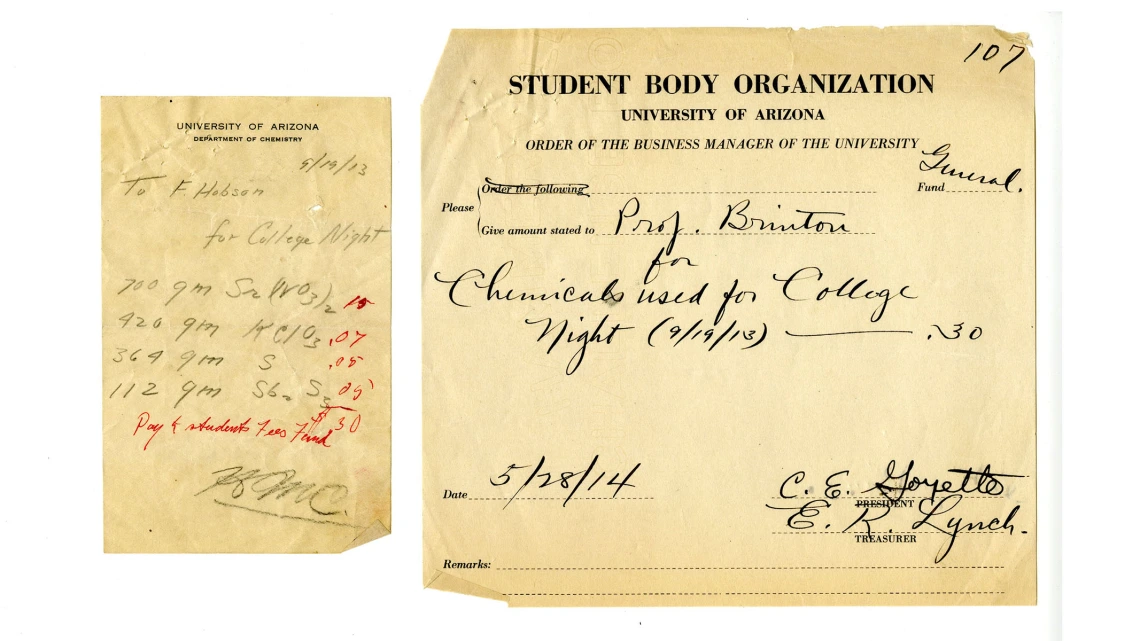 UNIVERSITY OF ARIZONA
DEPARTMENT OF CHEMISTRY
9/19/13
To F. Hobson
for College Night
700 gm Sr(NO3)2 15
420 gm KClO3 .07
364 gm S .05
112 gm Sb2 S3 05
$ 30
Pay to students Fees Fund
107
STUDENT BODY ORGANIZATION
UNIVERSITY OF ARIZONA
ORDER OF THE BUSINESS MANAGER OF THE UNIVERSITY
Order the following
Fund General.
Please
Give amount stated to Prof. Brinton
for
Chemicals used for College
Night (9/19/13) .30
Date 5/28/14
C. E. Goyette
PRESIDENT
E. K. Lynch.
TREASURER
Remarks: